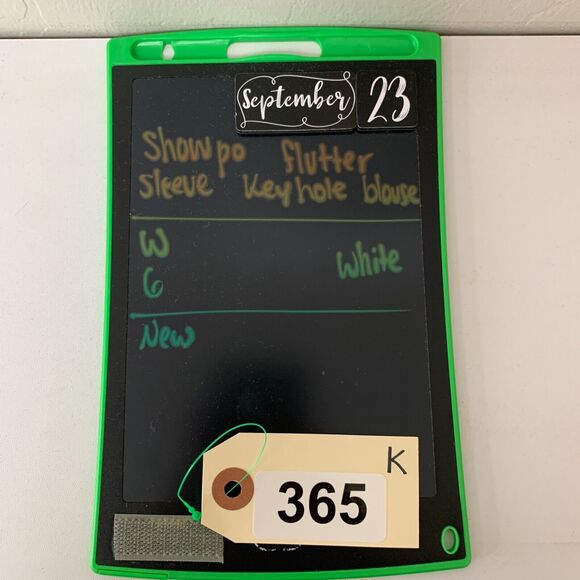 September 23
Showpo flutter
sleeve keyhole blouse
W
White
6
New
K
365